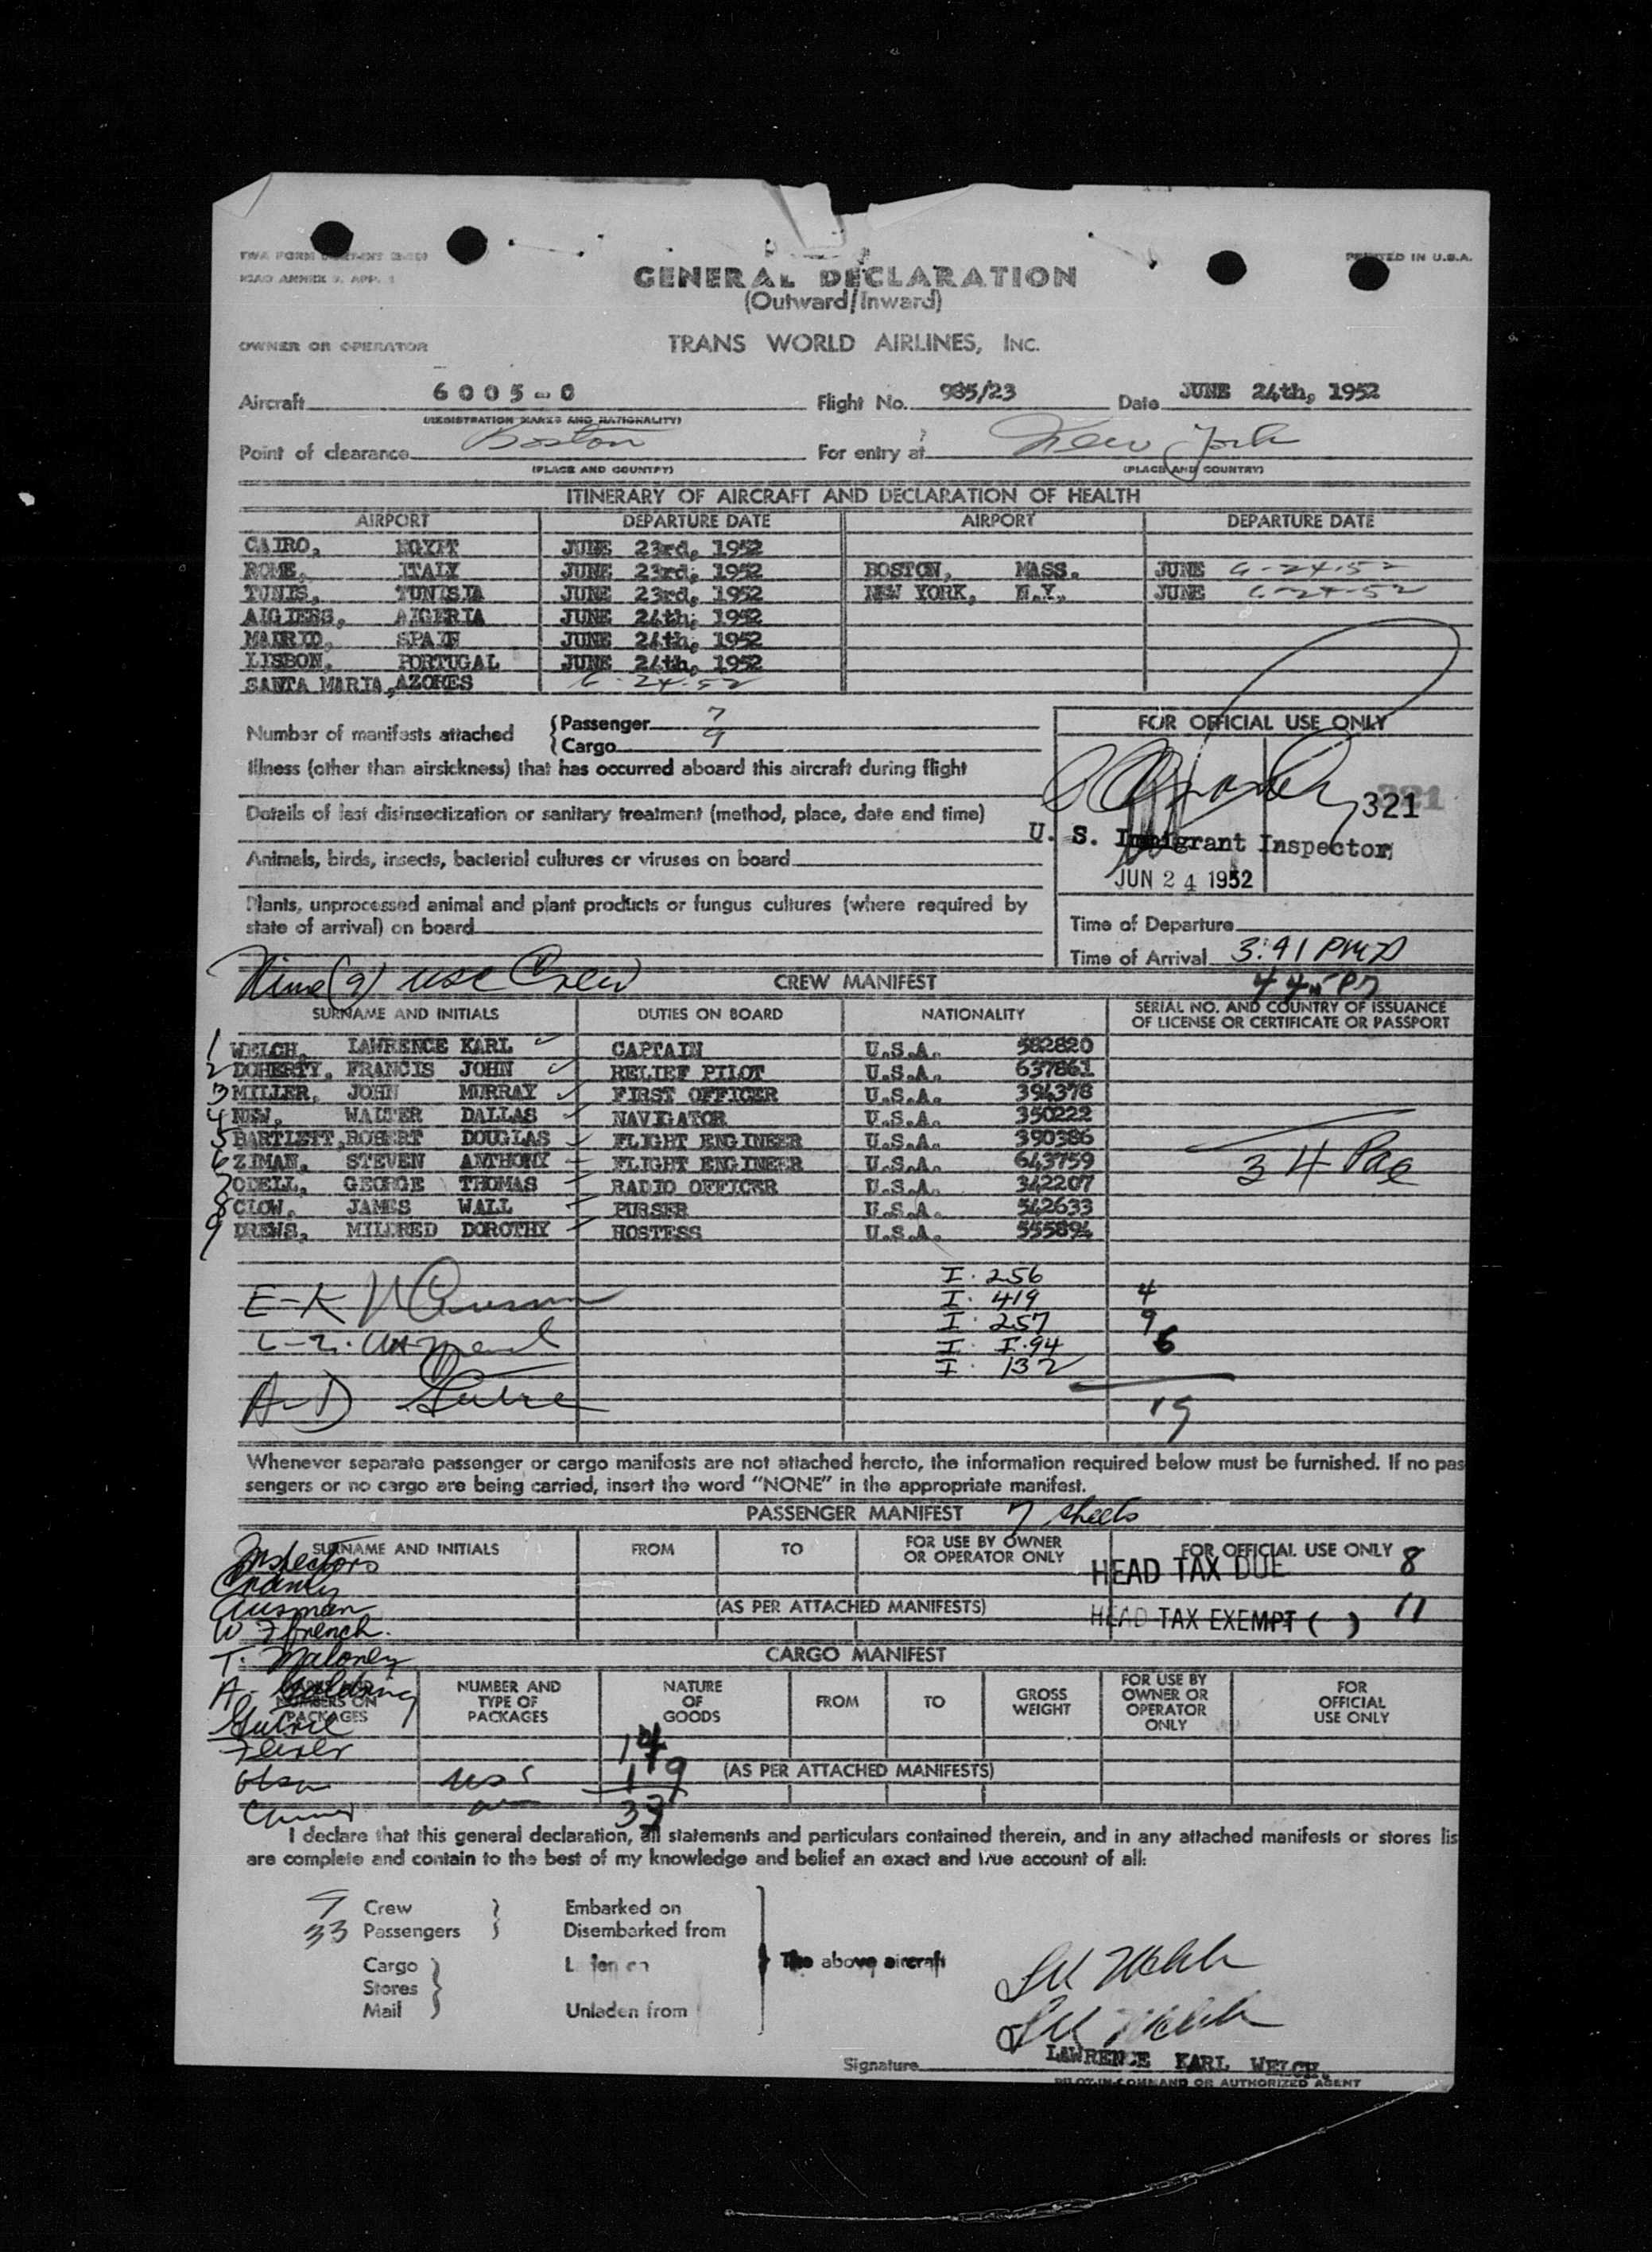 PRINTED IN U.S.A.
ICAO ANNEX 9, APP. 1
GENERAL DECLARATION
(Outward/Inward)
OWNER OR OPERATOR
TRANS WORLD AIRLINES, INC.
Aircraft 6005-C Flight No. 985/23 Date JUNE 24th, 1952
(REGISTRATION MARKS AND NATIONALITY)
Point of clearance Boston For entry at New York
(PLACE AND COUNTRY) (PLACE AND COUNTRY)
ITINERARY OF AIRCRAFT AND DECLARATION OF HEALTH
AIRPORT DEPARTURE DATE AIRPORT DEPARTURE DATE
CAIRO, EGYPT JUNE 23rd, 1952
ROME, ITALY JUNE 23rd, 1952 BOSTON, MASS. JUNE 6-24-52
TUNIS, TUNISIA JUNE 23rd, 1952 NEW YORK, N.Y. JUNE 6-24-52
ALGIERS, ALGERIA JUNE 24th, 1952
MADRID, SPAIN JUNE 24th, 1952
LISBON, PORTUGAL JUNE 24th, 1952
SANTA MARIA, AZORES 6-24-52
Number of manifests attached
Passenger 7
Cargo 9
Illness (other than airsickness) that has occurred aboard this aircraft during flight
Details of last disinsectization or sanitary treatment (method, place, date and time)
Animals, birds, insects, bacterial cultures or viruses on board
Plants, unprocessed animal and plant products or fungus cultures (where required by
state of arrival) on board
FOR OFFICIAL USE ONLY
321
321
U. S. Immigrant Inspector
JUN 24 1952
Time of Departure
Time of Arrival 3:41 PM
Nine (9) usc Crew
CREW MANIFEST
SURNAME AND INITIALS DUTIES ON BOARD NATIONALITY SERIAL NO. AND COUNTRY OF ISSUANCE
OF LICENSE OR CERTIFICATE OR PASSPORT
1 WELCH, LAWRENCE KARL CAPTAIN U.S.A. 582820
2 DOHERTY, FRANCIS JOHN RELIEF PILOT U.S.A. 637861
3 MILLER, JOHN MURRAY FIRST OFFICER U.S.A. 394378
4 NEW, WALTER DALLAS NAVIGATOR U.S.A. 350222
5 BARTLETT, ROBERT DOUGLAS FLIGHT ENGINEER U.S.A. 390386
6 ZIMAN, STEVEN ANTHONY FLIGHT ENGINEER U.S.A. 643759
7 ODELL, GEORGE THOMAS RADIO OFFICER U.S.A. 342207
8 CLOW, JAMES WALL PURSER U.S.A. 542633
9 DREWS, MILDRED DOROTHY HOSTESS U.S.A. 555894
34 Pas
I. 256
E-K I. 419 4
I. 257 9
I. I.94 6
I. 132
A-D Gutrie 19
Whenever separate passenger or cargo manifests are not attached hereto, the information required below must be furnished. If no pas
sengers or no cargo are being carried, insert the word "NONE" in the appropriate manifest.
PASSENGER MANIFEST 7 sheets
SURNAME AND INITIALS FROM TO FOR USE BY OWNER
OR OPERATOR ONLY FOR OFFICIAL USE ONLY
Inspectors
HEAD TAX DUE 8
Ausman
(AS PER ATTACHED MANIFESTS)
HEAD TAX EXEMPT ( ) 11
W French.
T. Maloney
CARGO MANIFEST
NUMBERS ON
PACKAGES
NUMBER AND
TYPE OF
PACKAGES
NATURE
OF
GOODS
FROM TO GROSS
WEIGHT
FOR USE BY
OWNER OR
OPERATOR
ONLY
FOR
OFFICIAL
USE ONLY
Gutrie
14
19
33
(AS PER ATTACHED MANIFESTS)
I declare that this general declaration, all statements and particulars contained therein, and in any attached manifests or stores lis
are complete and contain to the best of my knowledge and belief an exact and true account of all:
9 Crew Embarked on
33 Passengers Disembarked from
Cargo
Stores
Mail Unladen from
The above aircraft
LK Welch
LK Welch
LAWRENCE KARL WELCH
Signature
PILOT IN COMMAND OR AUTHORIZED AGENT